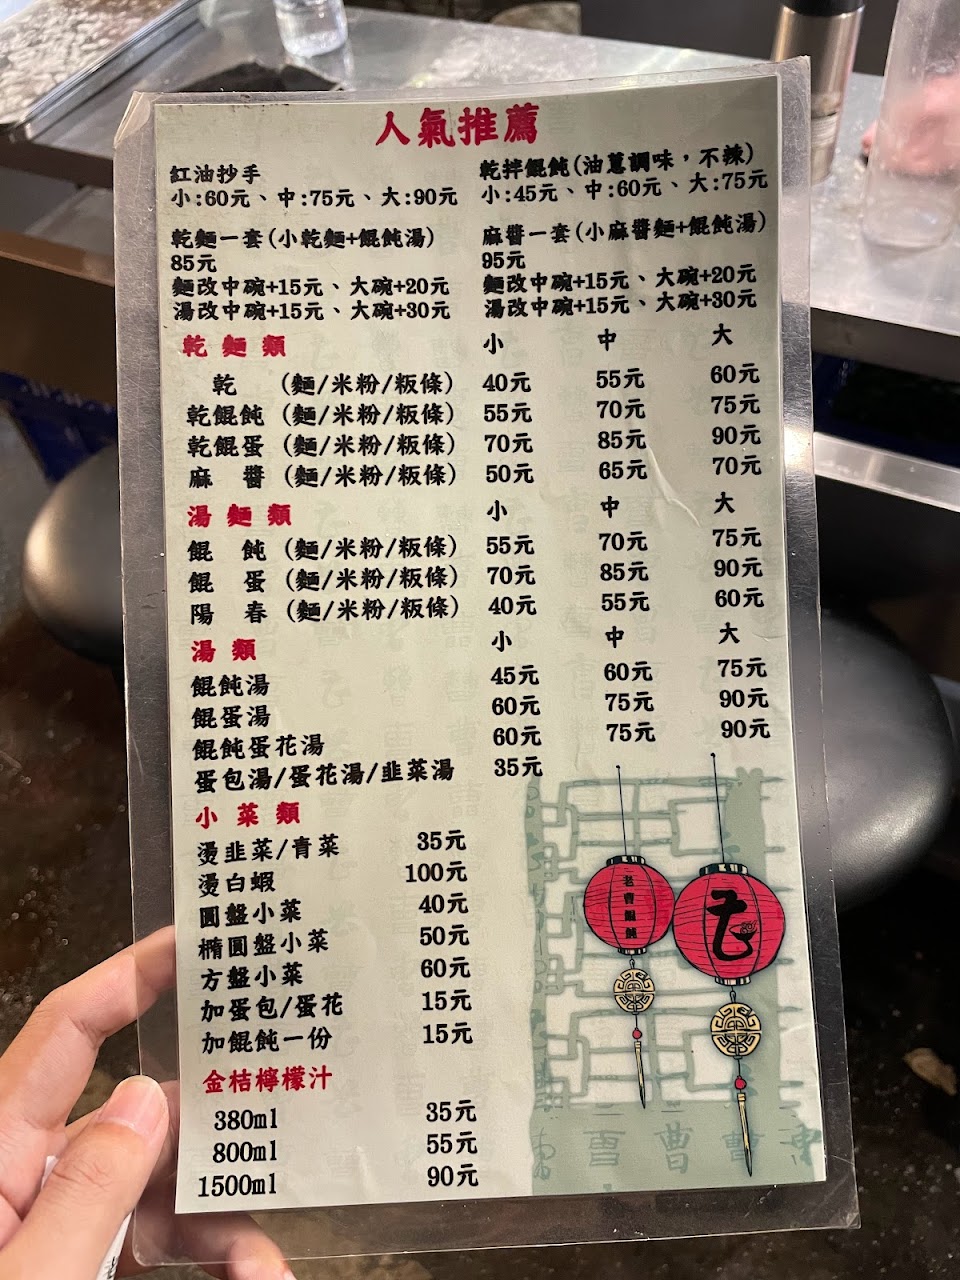 人氣推薦
紅油抄手
小:60元、中:75元、大:90元
乾拌餛飩(油蔥調味，不辣)
小:45元、中:60元、大:75元
乾麵一套(小乾麵+餛飩湯)
85元
麵改中碗+15元、大碗+20元
湯改中碗+15元、大碗+30元
麻醬一套(小麻醬麵+餛飩湯)
95元
麵改中碗+15元、大碗+20元
湯改中碗+15元、大碗+30元
乾麵類 小 中 大
乾 (麵/米粉/粄條) 40元 55元 60元
乾餛飩 (麵/米粉/粄條) 55元 70元 75元
乾餛蛋 (麵/米粉/粄條) 70元 85元 90元
麻 醬 (麵/米粉/粄條) 50元 65元 70元
湯麵類 小 中 大
餛 飩 (麵/米粉/粄條) 55元 70元 75元
餛 蛋 (麵/米粉/粄條) 70元 85元 90元
陽 春 (麵/米粉/粄條) 40元 55元 60元
湯類 小 中 大
餛飩湯 45元 60元 75元
餛蛋湯 60元 75元 90元
餛飩蛋花湯 60元 75元 90元
蛋包湯/蛋花湯/韭菜湯 35元
小菜類
燙韭菜/青菜 35元
燙白蝦 100元
圓盤小菜 40元
橢圓盤小菜 50元
方盤小菜 60元
加蛋包/蛋花 15元
加餛飩一份 15元
金桔檸檬汁
380ml 35元
800ml 55元
1500ml 90元
老曹餛飩
曹 曹